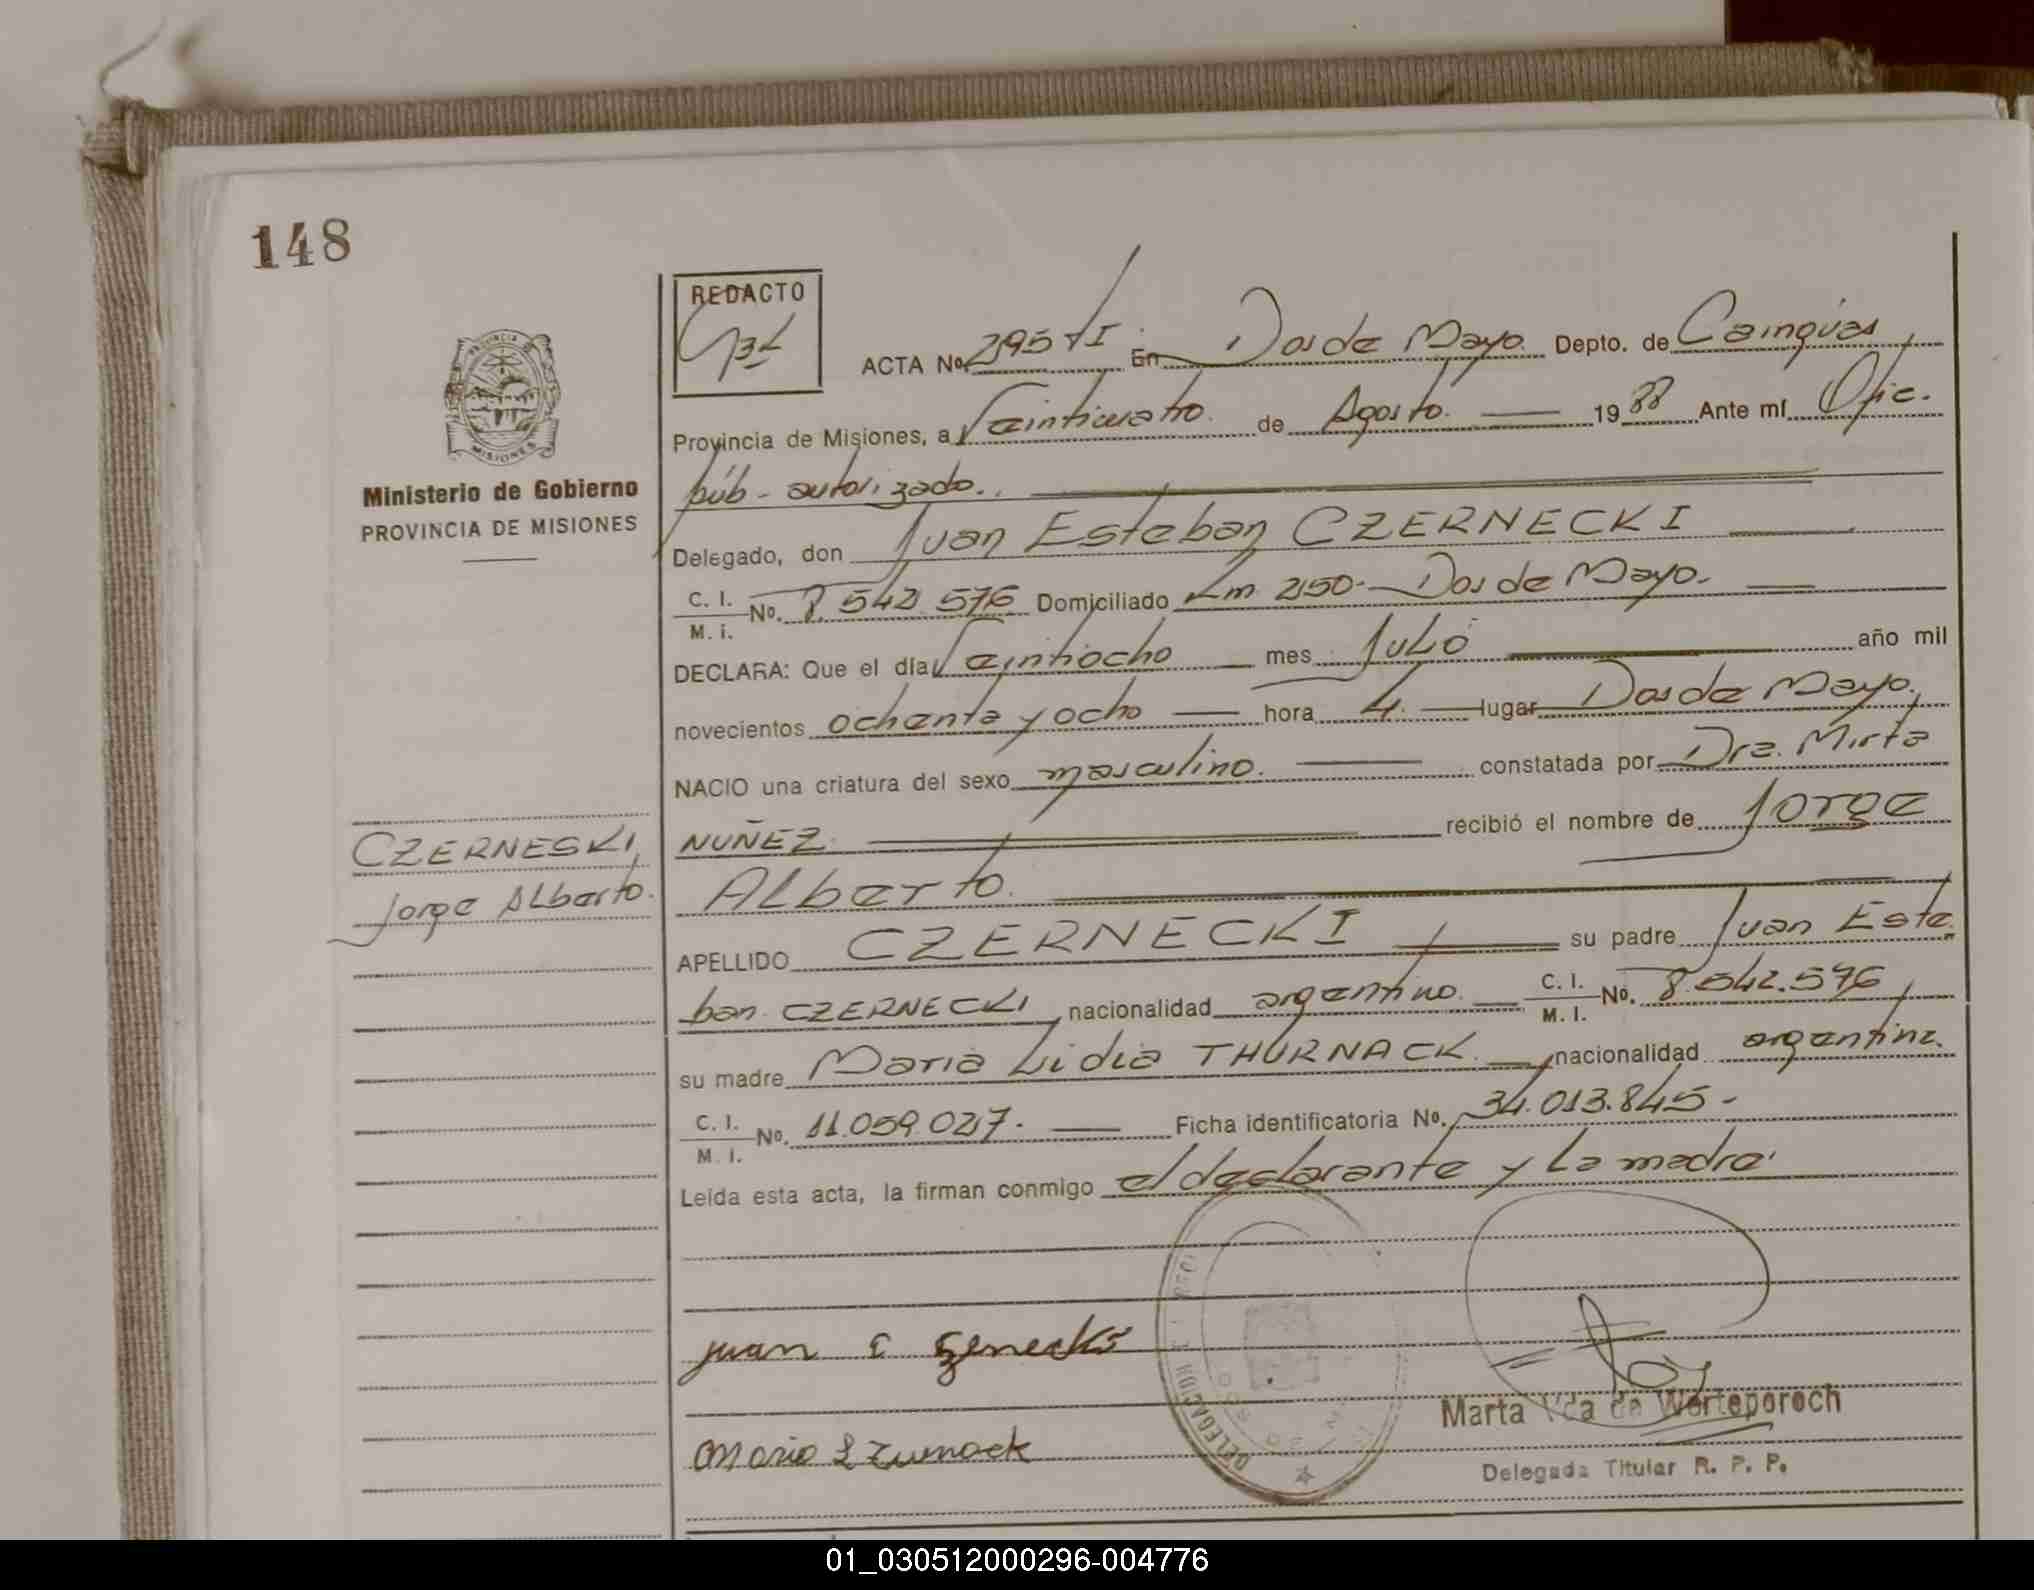 148
REDACTO
ACTA No. 295 T I En Dos de Mayo. Depto. de Cainguas
Provincia de Misiones, a Veinticuatro. de Agosto. 19 88 Ante mí Ofic.
púb- autorizado..
PROVINCIA DE
MISIONES
Ministerio de Gobierno
PROVINCIA DE MISIONES
Delegado, don Juan Esteban CZERNECKI
C. I. M. i. No. 8.542.576 Domiciliado Km 250- Dos de Mayo.
DECLARA: Que el día Veintiocho mes Julio año mil
novecientos ochenta y ocho hora 4. lugar Dos de Mayo.
NACIO una criatura del sexo masculino. constatada por Dra. Mirta
NUÑEZ. recibió el nombre de Jorge
Alberto.
CZERNESKI,
Jorge Alberto.
APELLIDO CZERNECKI su padre Juan Este
ban CZERNECKI nacionalidad argentino. C. I. M. I. No. 8.542.576
su madre Maria Lidia THURNACK. nacionalidad argentina.
C. I. M. I. No. 11.059.027. Ficha identificatoria No. 34.013.845-
Leída esta acta, la firman conmigo el declarante y la madre.
juan E
Maria L Zurnack
DELEGACION
Marta Vda de Worteporoch
Delegada Titular R. P. P.
01_030512000296-004776